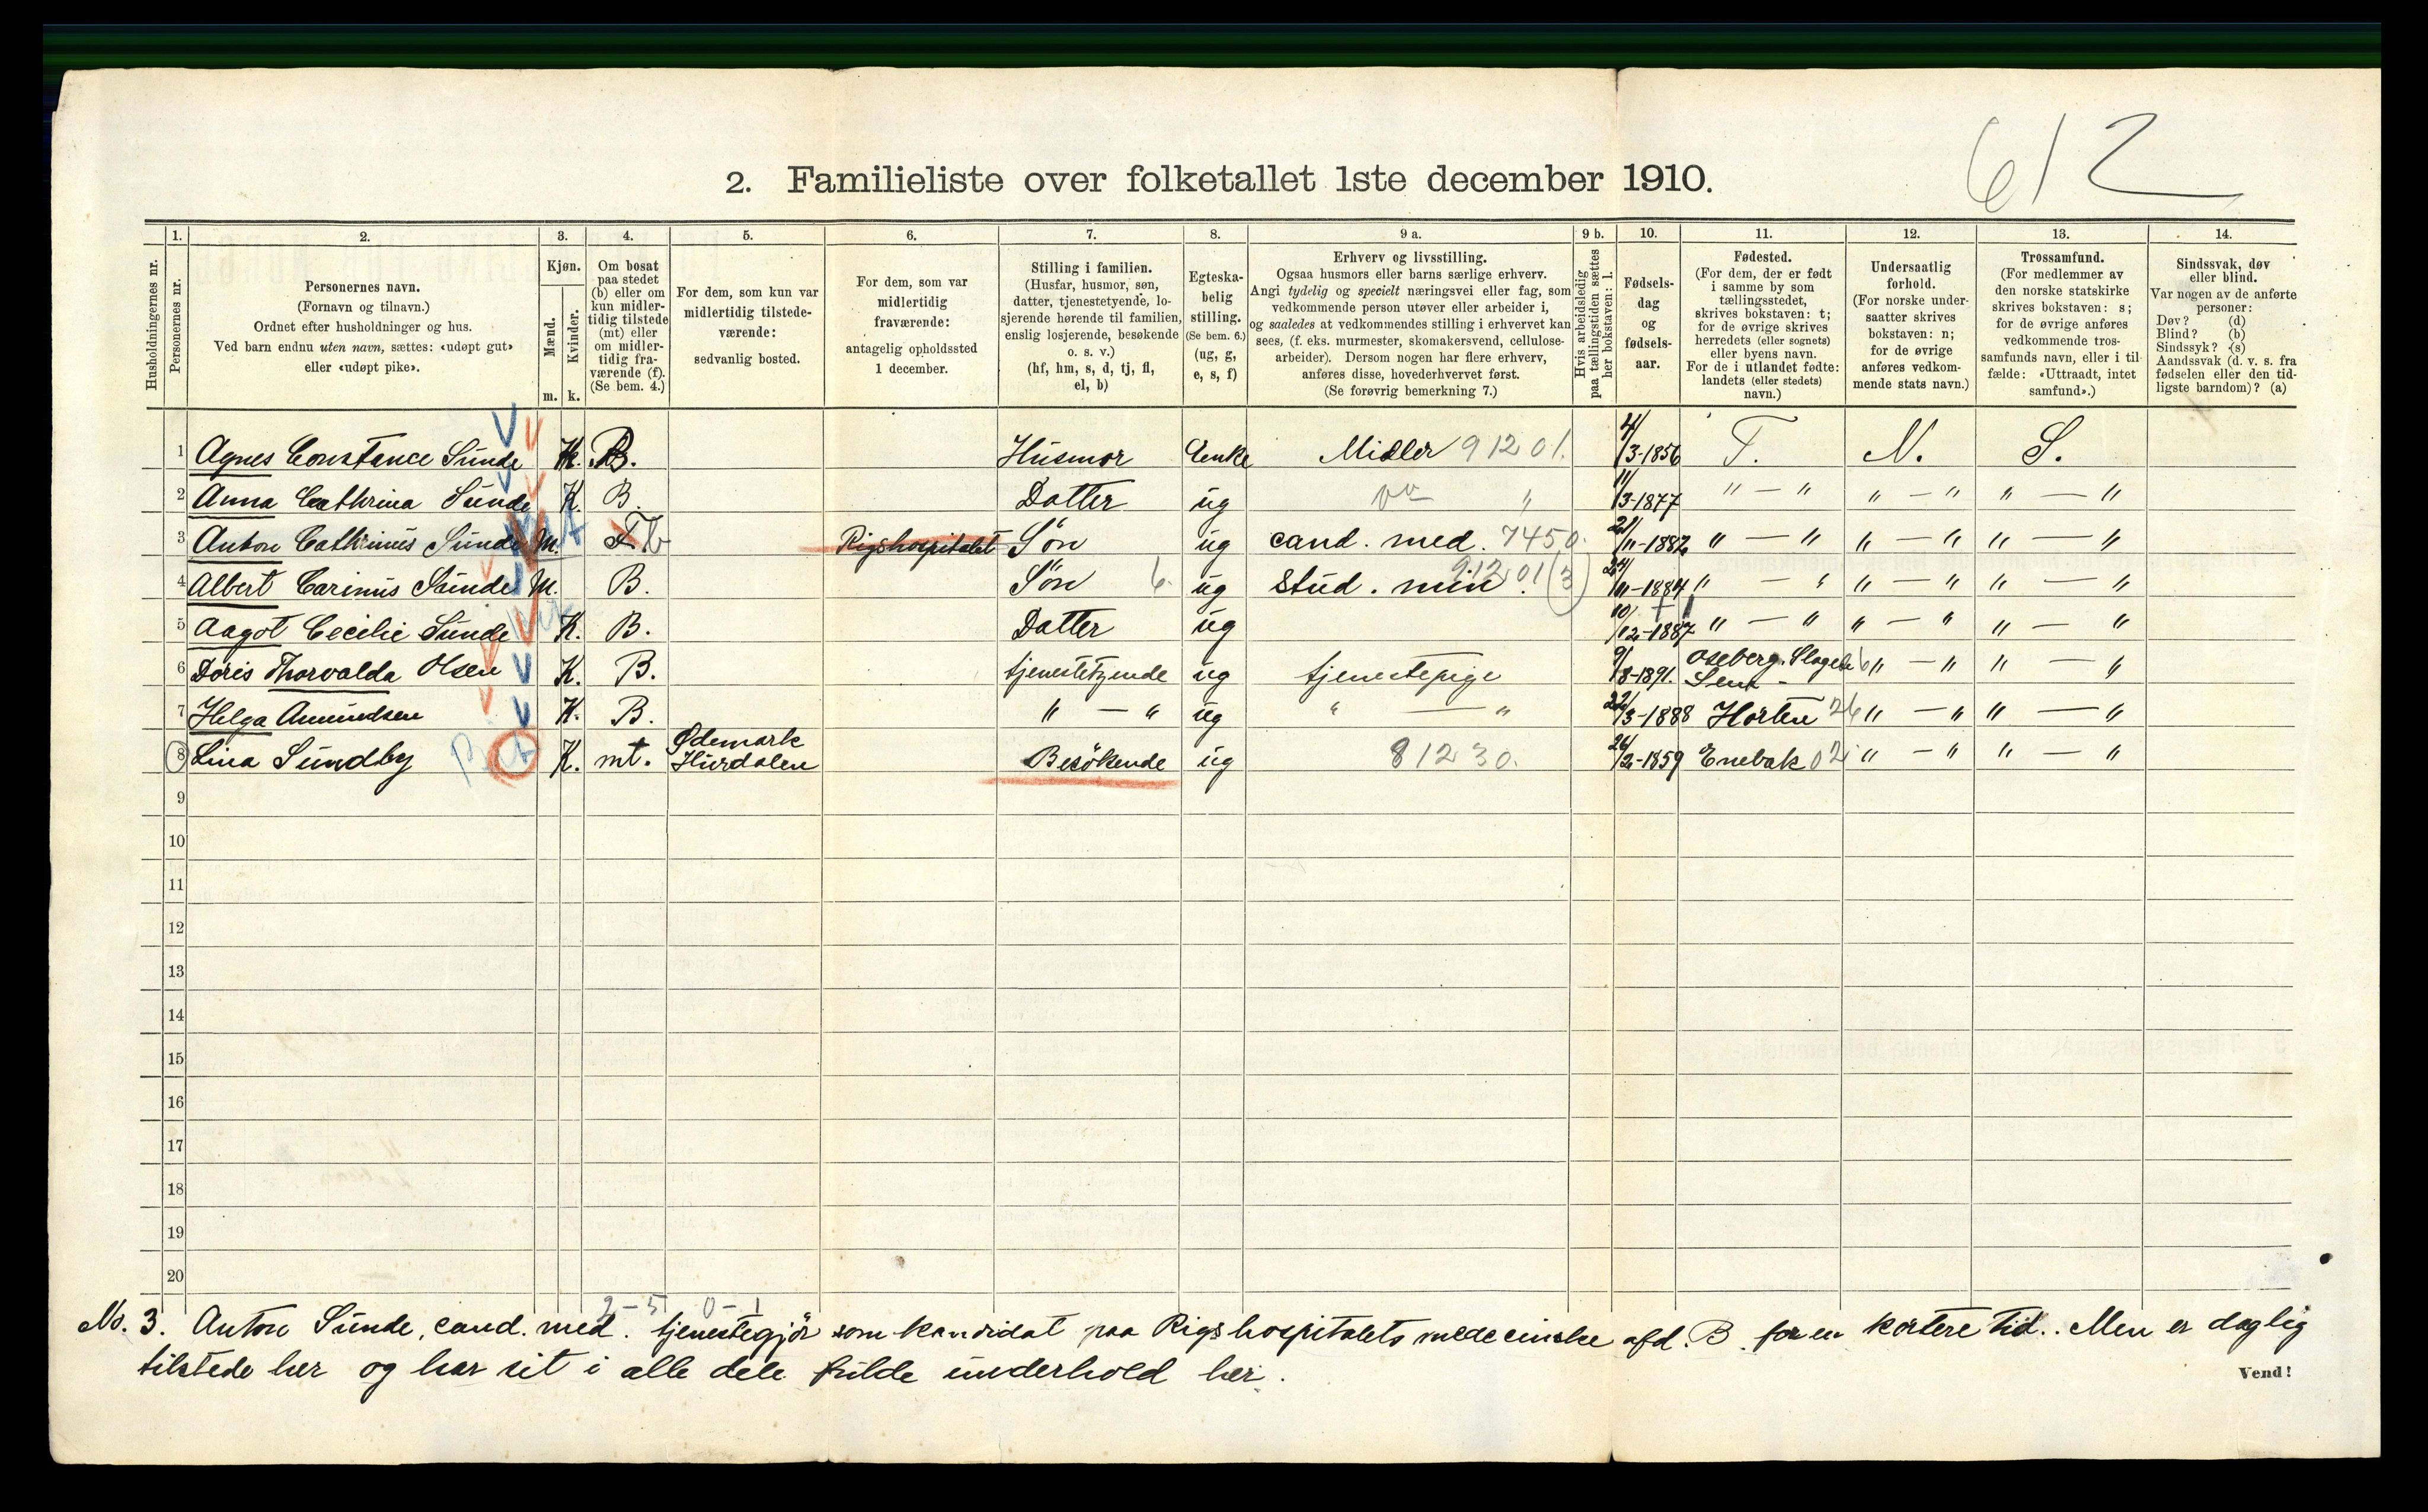 612
2. Familieliste over folketallet 1ste december 1910.
1. 2. 3. 4. 5. 6. 7. 8. 9 a. 9 b. 10. 11. 12. 13. 14.
Husholdningernes nr.
Personernes nr.
Personernes navn.
(Fornavn og tilnavn.)
Ordnet efter husholdninger og hus.
Ved barn endnu uten navn, sættes: «udøpt gut»
eller «udøpt pike».
Kjøn.
Mænd. Kvinder.
m. k.
Om bosat
paa stedet
(b) eller om
kun midler-
tidig tilstede
(mt) eller
om midler-
tidig fra-
værende (f).
(Se bem. 4.)
For dem, som kun var
midlertidig tilstede-
værende:
sedvanlig bosted.
For dem, som var
midlertidig
fraværende:
antagelig opholdssted
1 december.
Stilling i familien.
(Husfar, husmor, søn,
datter, tjenestetyende, lo-
sjerende hørende til familien,
enslig losjerende, besøkende
o. s. v.)
(hf, hm, s, d, tj, fl,
el, b)
Egteska-
belig
stilling.
(Se bem. 6.)
(ug, g,
e, s, f)
Erhverv og livsstilling.
Ogsaa husmors eller barns særlige erhverv.
Angi tydelig og specielt næringsvei eller fag, som
vedkommende person utøver eller arbeider i,
og saaledes at vedkommendes stilling i erhvervet kan
sees, (f. eks. murmester, skomakersvend, cellulose-
arbeider). Dersom nogen har flere erhverv,
anføres disse, hovederhvervet først.
(Se forøvrig bemerkning 7.)
Hvis arbeidsledig
paa tællingstiden sættes
her bokstaven: l.
Fødsels-
dag
og
fødsels-
aar.
Fødested.
(For dem, der er født
i samme by som
tællingsstedet,
skrives bokstaven: t;
for de øvrige skrives
herredets (eller sognets)
eller byens navn.
For de i utlandet fødte:
landets (eller stedets)
navn.)
Undersaatlig
forhold.
(For norske under-
saatter skrives
bokstaven: n;
for de øvrige
anføres vedkom-
mende stats navn.)
Trossamfund.
(For medlemmer av
den norske statskirke
skrives bokstaven: s;
for de øvrige anføres
vedkommende tros-
samfunds navn, eller i til-
fælde: «Uttraadt, intet
samfund».)
Sindssvak, døv
eller blind.
Var nogen av de anførte
personer:
Døv? (d)
Blind? (b)
Sindssyk? (s)
Aandssvak (d. v. s. fra
fødselen eller den tid-
ligste barndom)? (a)
1 Agnes Constance Sunde K. B. Husmor Enke Midler 91201. 4/3-1856 T. N. S.
2 Anna Cathrina Sunde K. B. Datter ug " 11/3-1877 " — " " — " " — "
3 Anton Cathrinus Sunde M. F b Rigshospitalet Søn ug cand. med. 7450. 21/11-1882 " — " " — " " — "
4 Albert Carinus Sunde M. B. Søn 6. ug stud. min. 91201 (3) 24/11-1884 " — " " — " " — "
5 Aagot Cecilie Sunde K. B. Datter ug 10/12-1887 " — " " — " " — "
6 Doris Thorvalda Olsen K. B. tjenestetyende ug tjenestepige 9/8-1891. Oseberg. Slagen " — " " — "
7 Helga Amundsen K. B. " — " ug " — " 22/3-1888 Horten " — " " — "
8 Lina Sundby K. mt. Ødemark Hurdalen Besökende ug 81230. 26/2-1859 Enebak 02 " — " " — "
9
10
11
12
13
14
15
16
17
18
19
20
2-5 0-1
No. 3. Anton Sunde, cand. med. tjenestegjör som kandidat paa Rigshospitalets medecinske afd. B. for en kortere tid.. Men er daglig
tilstede her og har sit i alle dele fulde underhold her.
Vend!